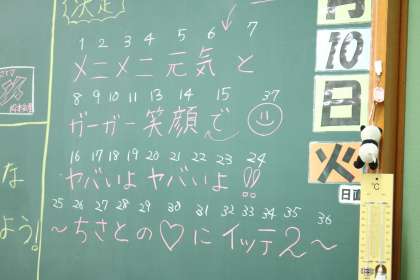 〈決定〉
1 2 3 4 5 6 7
メニメニ元気と
8 9 10 11 12 13 14 15 37
ガーガー笑顔で☺
16 17 18 19 20 21 22 23 24
ヤバいよヤバいよ!!
25 26 27 28 29 30 31 32 33 34 35 36
～ちさとの♡にイッテ2～
な
よう!
月
10
日
火
日直
℃